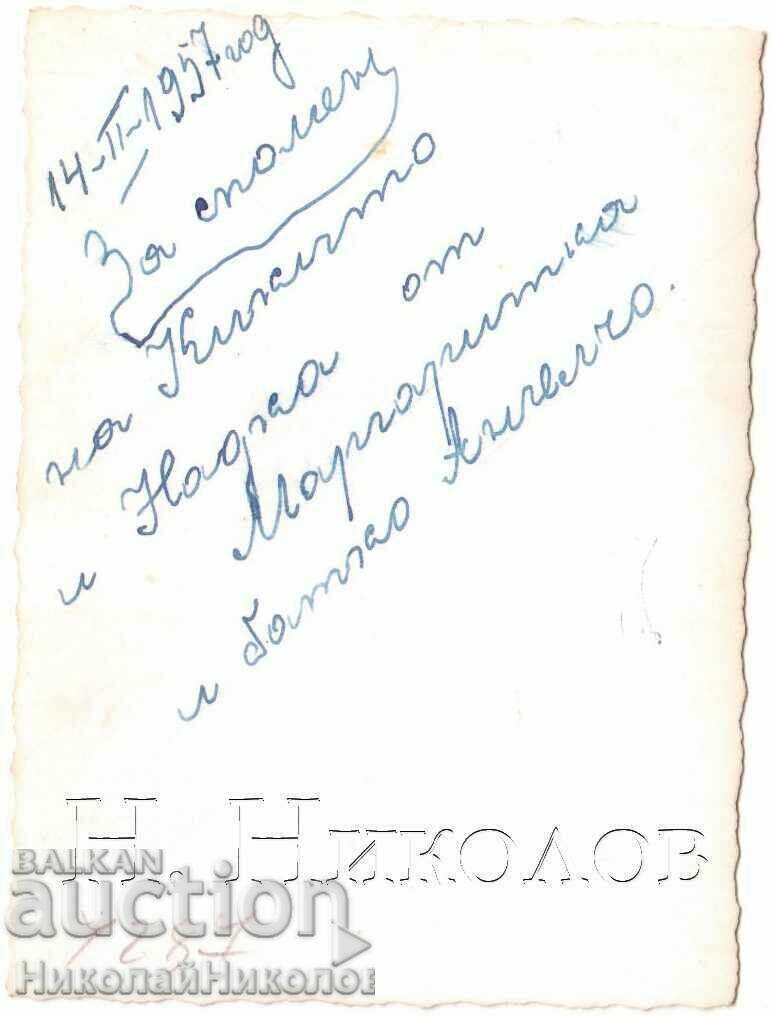 14-II-1957 год
За спомен
на Кинчто
и Надка от
Маргаритка
и батко Ангелчо.
Н. Николов
BALKAN
auction
НиколайНиколов